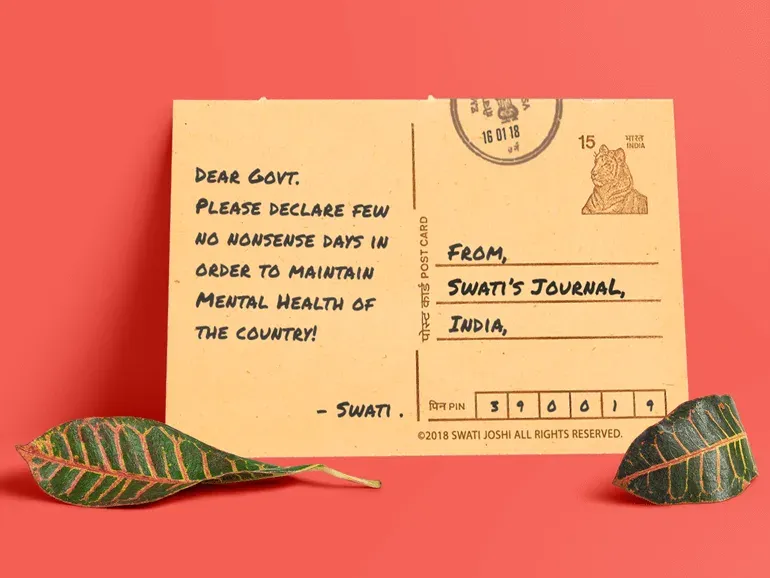 DEAR GOVT.
PLEASE DECLARE FEW
NO NONSENSE DAYS IN
ORDER TO MAINTAIN
MENTAL HEALTH OF
THE COUNTRY!
- SWATI.
16 01 18
15 भारत
INDIA
पोस्ट कार्ड POST CARD
FROM,
SWATI'S JOURNAL,
INDIA,
पिन PIN 390019
©2018 SWATI JOSHI ALL RIGHTS RESERVED.